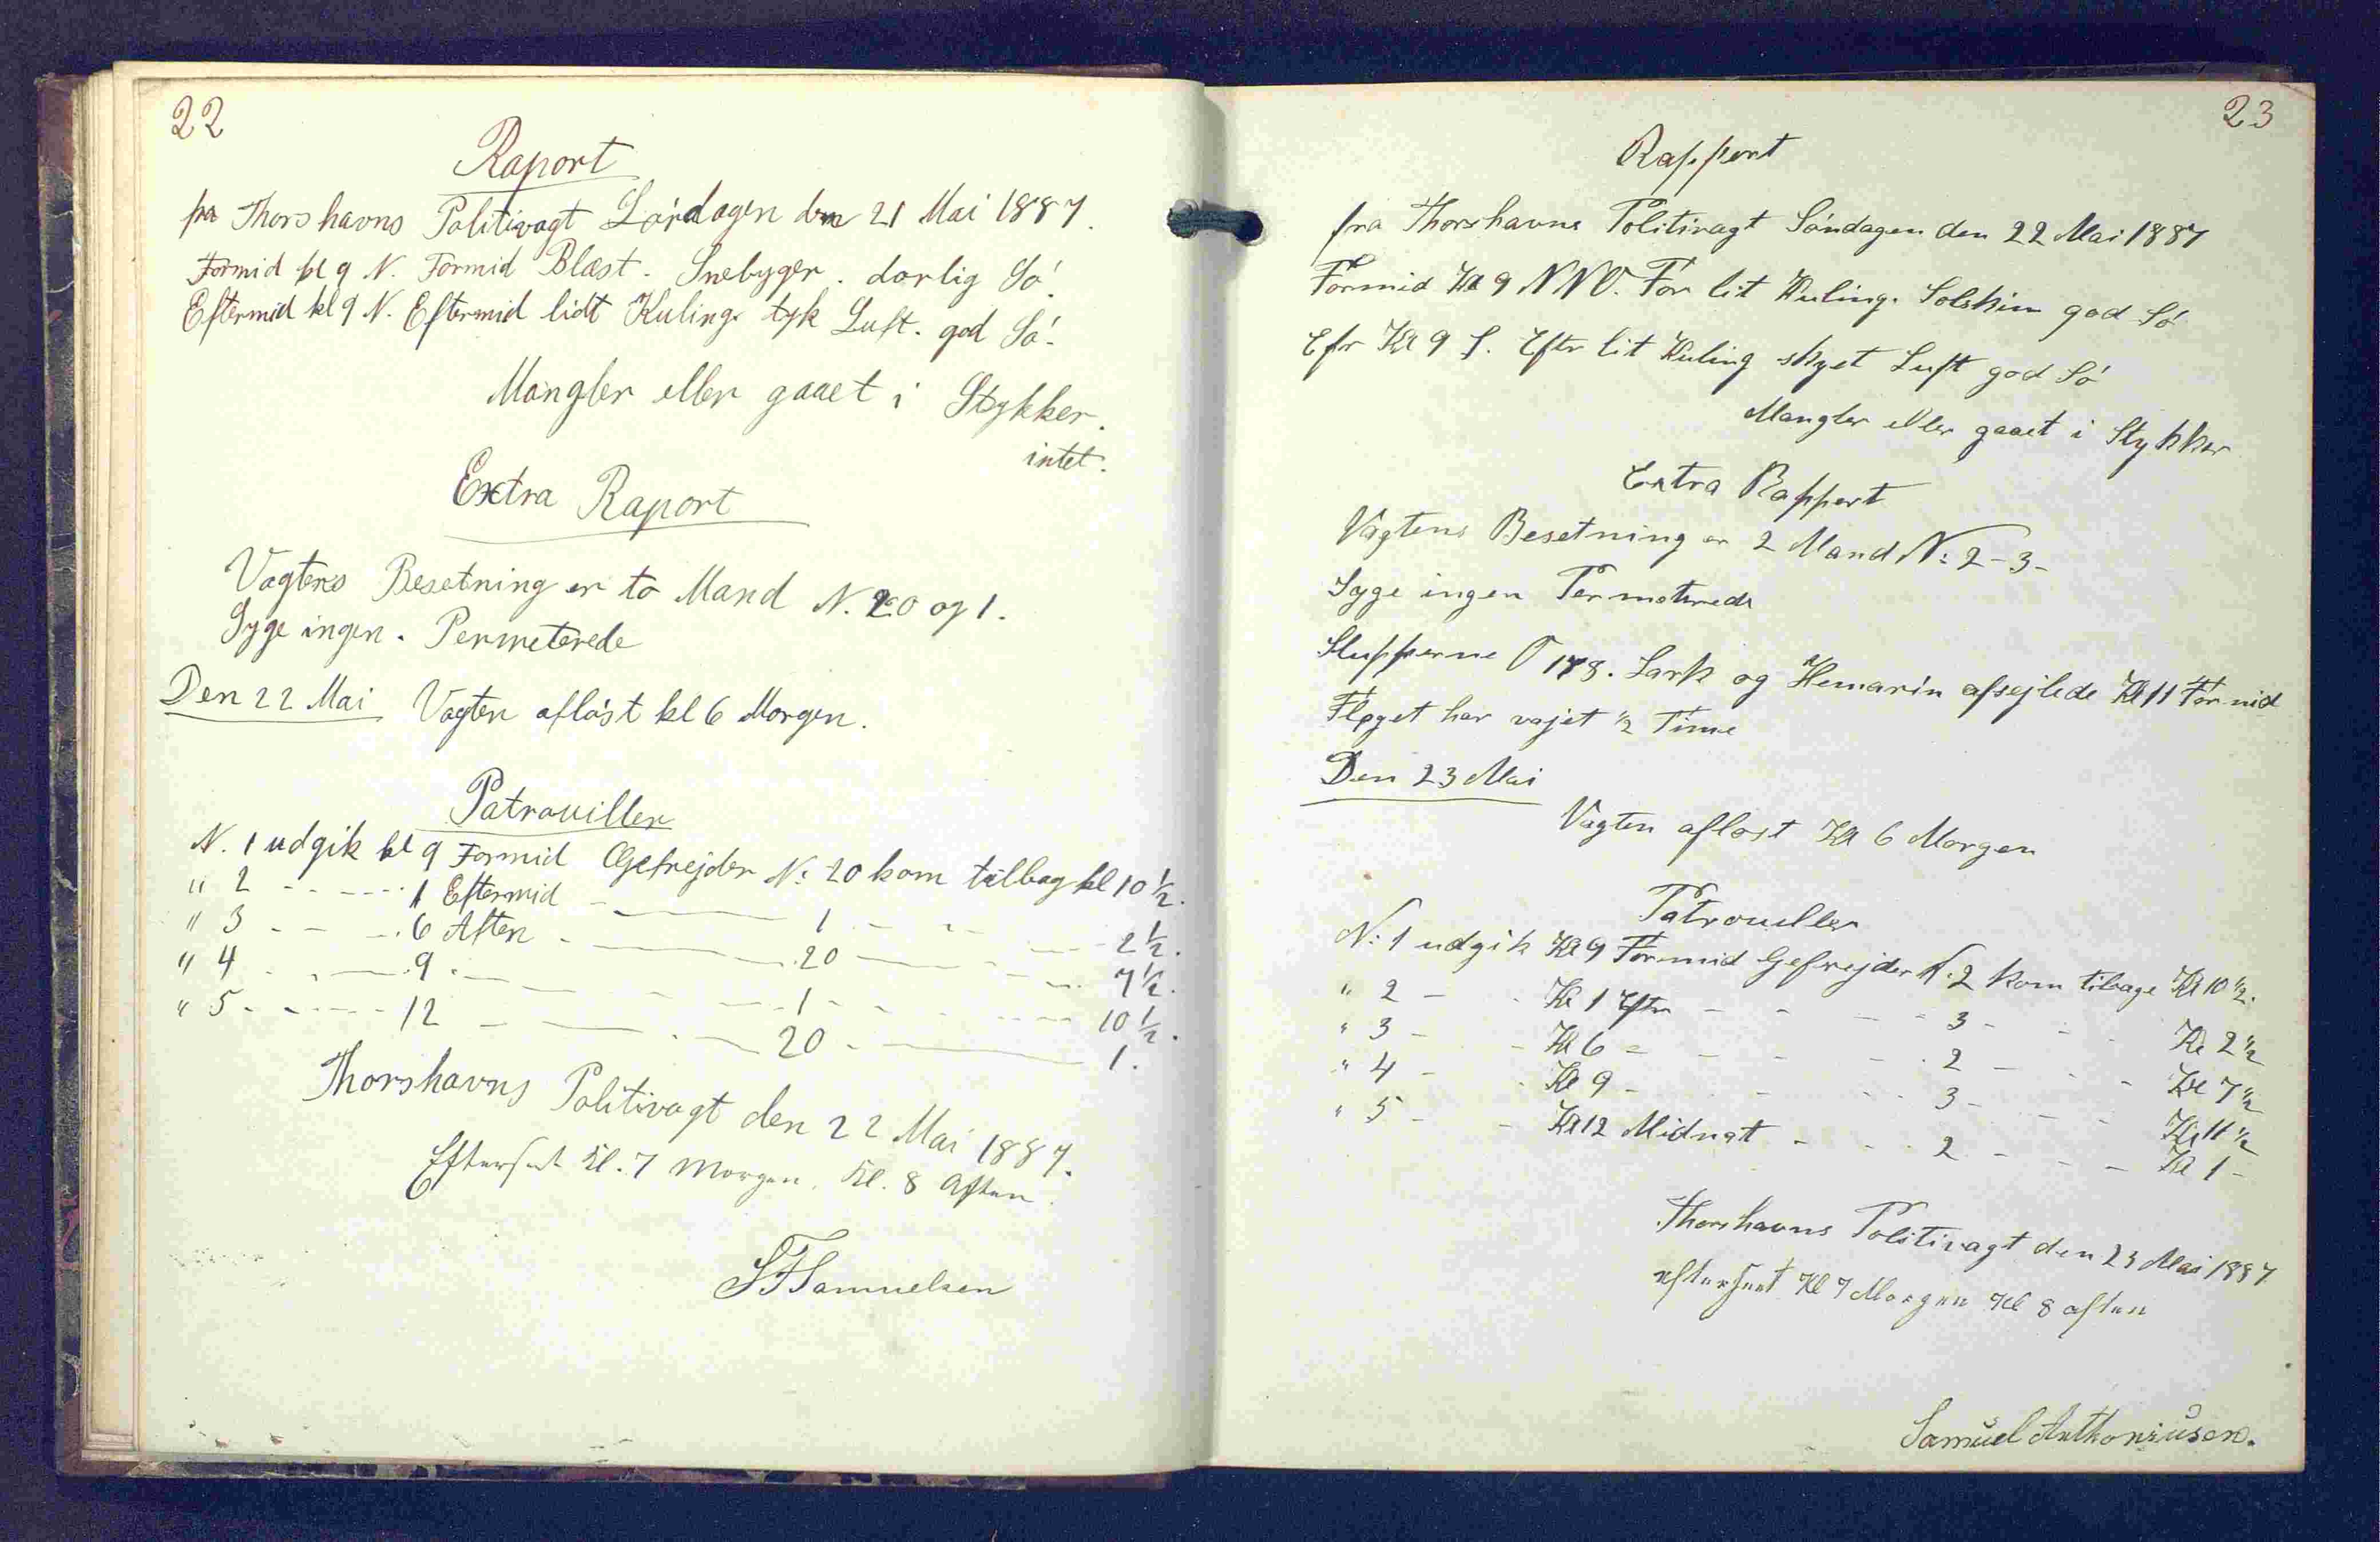 22
Raport
fra Thorshavns Politivagt Lørdagen den 21 Mai 1887.
Formid kl 9 N. Formid Blæst. Snebyger. dorlig Sö.
Eftermid kl 9 N. Eftermid lidt Kuling. tyk Luft. god Sö.
Mangler eller gaaet i Stykker.
intet.
Extra Raport
Vagtens Besetning er to Mand N. 20 og 1.
Syge ingen. Permeterede
Den 22 Mai Vagten afløst kl 6 Morgen.
Patrouiller
N. 1 udgik kl 9 Formid Gefrejder N: 20 kom tilbag kl 10 1/2.
" 2 - - - - - 1 Eftermid - - - 1 - - - 2 1/2.
" 3 - - - 6 Aften - - - 20 - - - 7 1/2.
" 4 - - - 9 - - - 1 - - - 10 1/2.
" 5 - - - 12 - - - 20 - - - 1.
Thorshavns Politivagt den 22 Mai 1887.
Efterseet Kl. 7 Morgen. Kl. 8 Aften.
SFSamuelsen
23
Rapport
fra Thorshavns Politivagt Söndagen den 22 Mai 1887
Formid Kl 9 NNV. For lit Kuling. Solskin god Sö
Efr Kl 9 S. Eftr lit Kuling skyet Luft god Sö
Mangler eller gaaet i Stykker
Extra Rappert
Vagtens Besetning er 2 Mand N: 2-3-
Syge ingen Permoterede
Slupperne 178. Lark og afsejlede Kl 11 Formid
Flaget har vajet 1/2 Time
Den 23 Mai
Vagten afløst Kl 6 Morgen
Patrouller
N: 1 udgik Kl 9 Formid Gefrejder N. 2 kom tilbage Kl 10 1/2.
" 2 - - Kl 1 Eftr - - - - 3 - - - Kl 2 1/2
" 3 - - Kl 6 - - - - 2 - - - Kl 7 1/2
" 4 - - Kl 9 - - - - 3 - - - Kl 11 1/2
" 5 - - Kl 12 Midnat - - - 2 - - - Kl 1 -
Thorshavns Politivagt den 23 Mai 1887
efterseet Kl 7 Morgen Kl 8 aften
Samuel Anthoniusen.